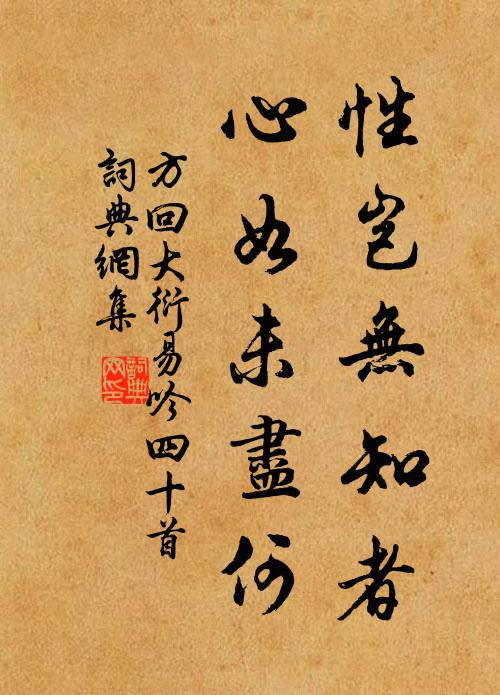 性豈無知者
心如未盡何
方回大衍易吟四十首
詞典網集
詞典网印